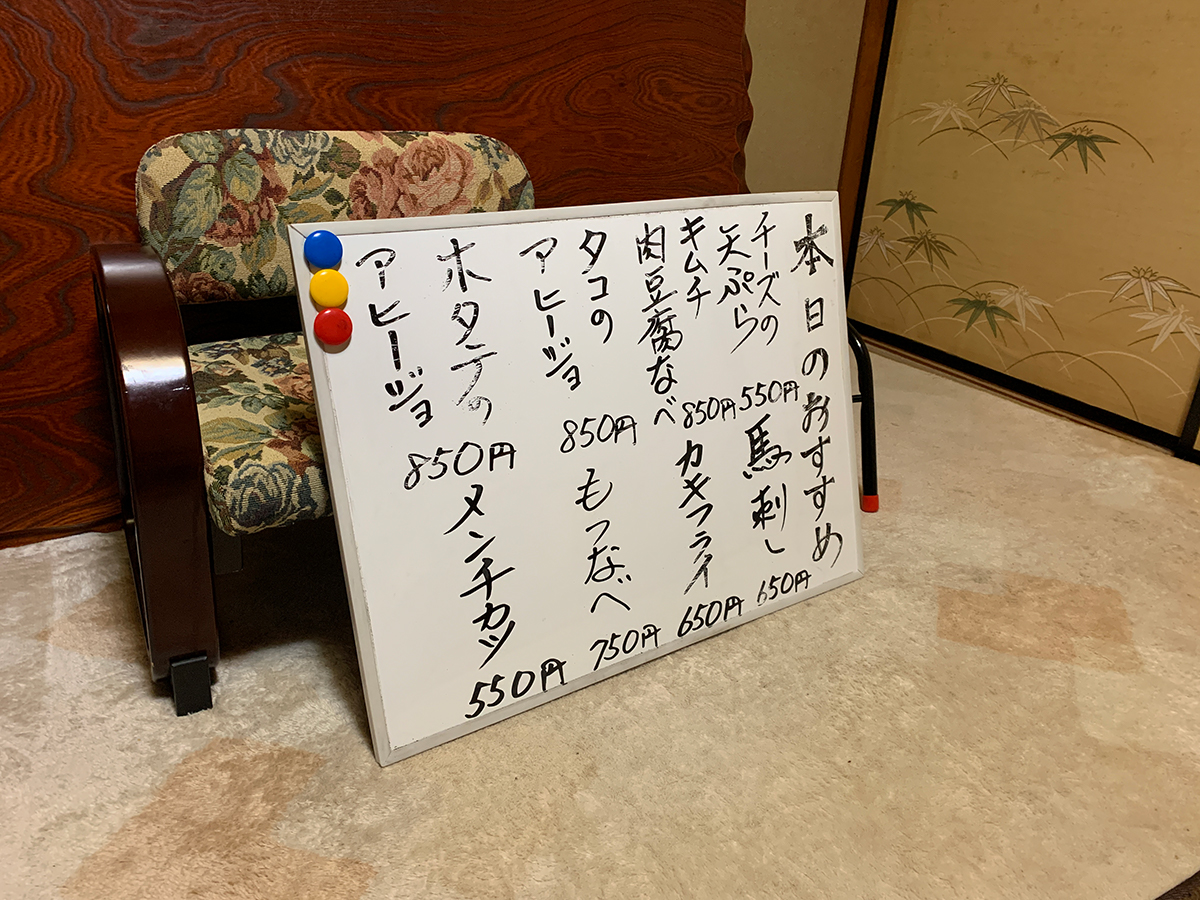 本日のおすすめ
チーズの
天ぷら
550円
馬刺し
650円
キムチ
肉豆腐なべ
850円
カキフライ
650円
タコの
アヒージョ
850円
もつなべ
750円
ホタテの
アヒージョ
850円
メンチカツ
550円